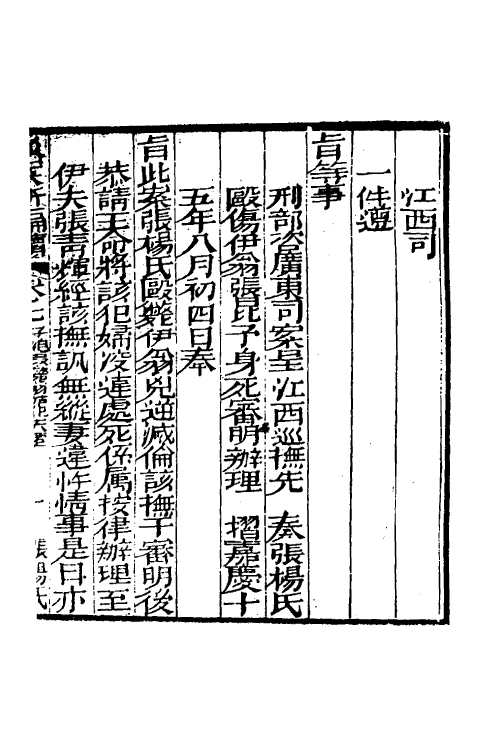 江西司
一件遵
旨等事
刑部咨廣東司案呈江西巡撫先　奏張楊氏
毆傷伊翁張昆予身死審明辦理　摺嘉慶十
五年八月初四日奉
旨此案張楊氏毆斃伊翁兇逆滅倫該撫于審明後
恭請王命將該犯婦凌遲處死係屬按律辦理至
伊夫張青輝經該撫訊無縱妻違忤情事是日亦
張楊氏